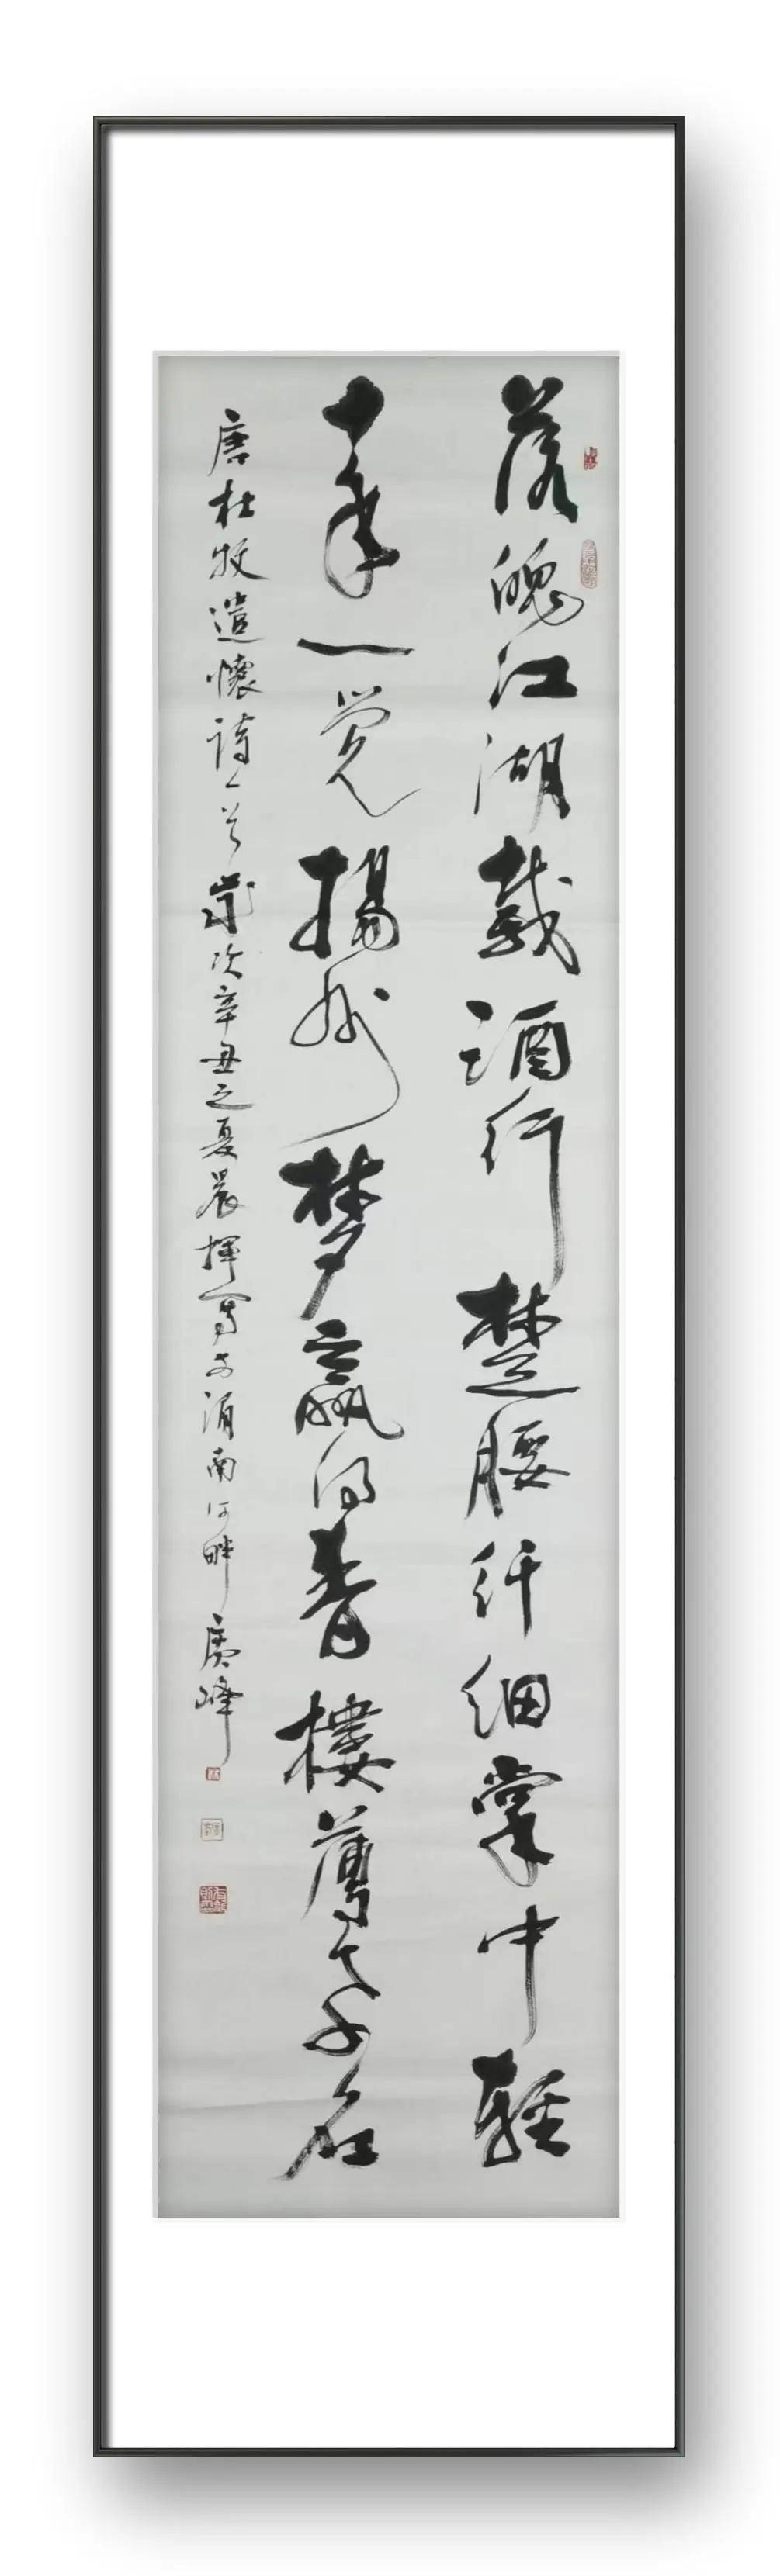 落魄江湖載酒行楚腰纤细掌中輕
十年一觉揚州梦贏得青樓薄幸名
唐杜牧遣懷詩一首歲次辛丑之夏晨揮寫於渭南河畔广峰